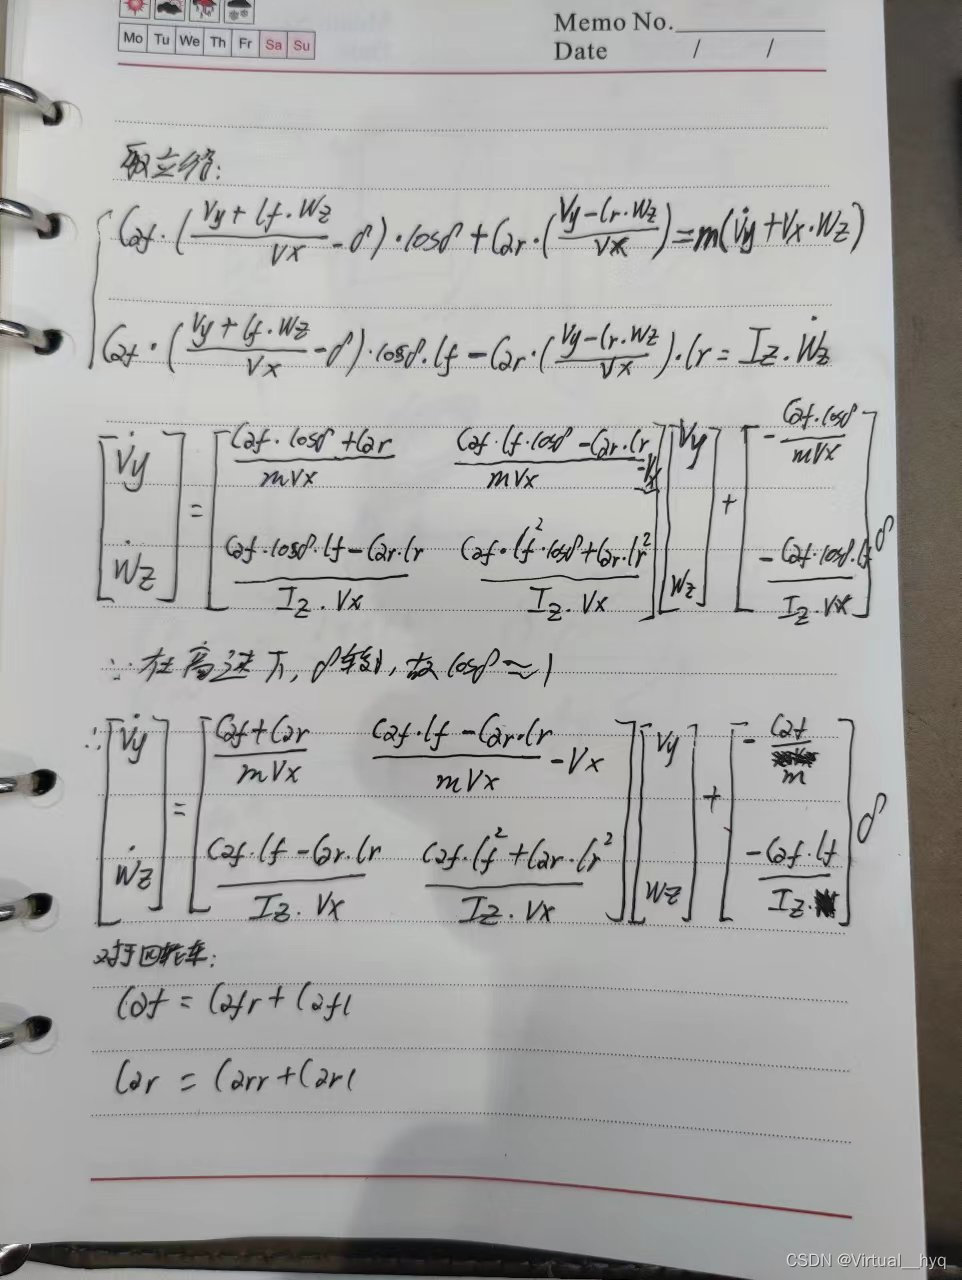 Mo Tu We Th Fr Sa Su
Memo No.
Date / /
联立得:
Cαf·((Vy+lf·Wz)/Vx-δ)·cosδ+Cαr·((Vy-lr·Wz)/Vx)=m(V̇y+Vx·Wz)
Cαf·((Vy+lf·Wz)/Vx-δ)·cosδ·lf-Cαr·((Vy-lr·Wz)/Vx)·lr=Iz·Ẇz
[V̇y; Ẇz]=[(Cαf·cosδ+Cαr)/(mVx), (Cαf·lf·cosδ-Cαr·lr)/(mVx)-Vx; (Cαf·cosδ·lf-Cαr·lr)/(Iz·Vx), (Cαf·lf²·cosδ+Cαr·lr²)/(Iz·Vx)][Vy; Wz]+[-(Cαf·cosδ)/(mVx); -(Cαf·cosδ·lf)/(Iz·Vx)]δ
∵在高速下, δ较小, 故cosδ≈1
∴[V̇y; Ẇz]=[(Cαf+Cαr)/(mVx), (Cαf·lf-Cαr·lr)/(mVx)-Vx; (Cαf·lf-Cαr·lr)/(Iz·Vx), (Cαf·lf²+Cαr·lr²)/(Iz·Vx)][Vy; Wz]+[-Cαf/m; -(Cαf·lf)/Iz]δ
对于四轮车:
Cαf=Cαfr+Cαfl
Cαr=Cαrr+Cαrl
CSDN @Virtual__hyq